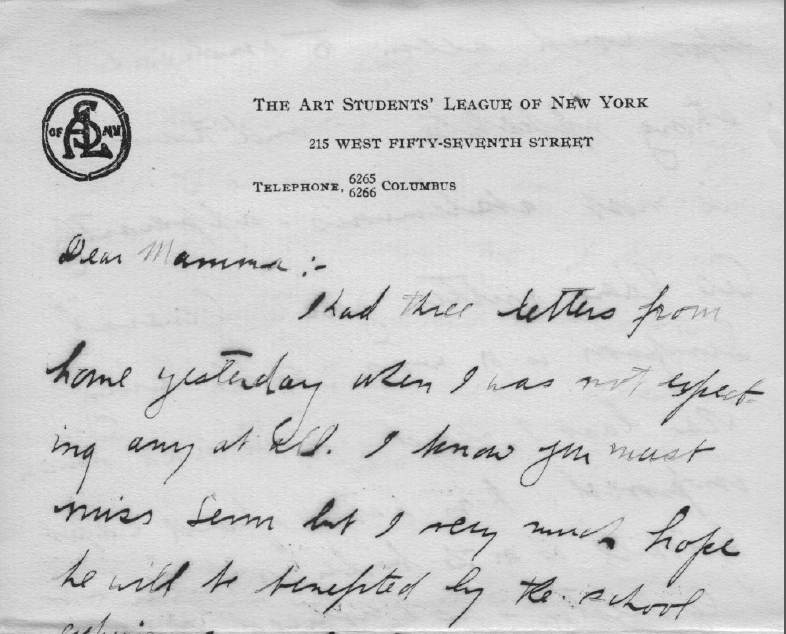 THE ART STUDENTS' LEAGUE OF NEW YORK
215 WEST FIFTY-SEVENTH STREET
TELEPHONE, 6265 6266 COLUMBUS
OF ASL NY
Dear Mamma :-
I had three letters from
home yesterday when I was not expect-
ing any at all. I know you must
miss but I very much hope
he will be benefited by the school